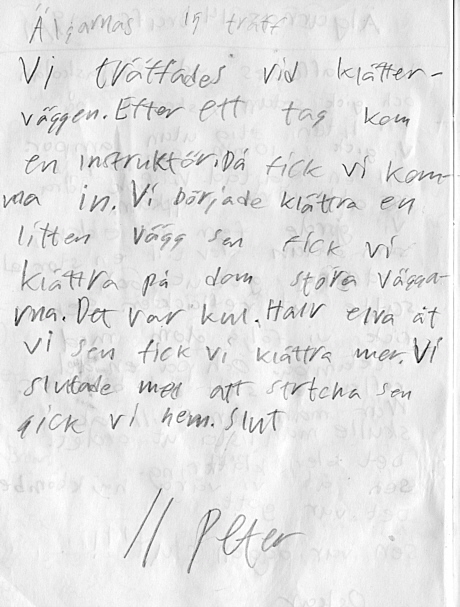 Älgarnas 19 träff
Vi träffades vid klätter-
väggen. Efter ett tag kom
en instruktör. Då fick vi kom-
ma in. Vi började klättra en
litten vägg sen fick vi
klättra på dom stora vägga-
rna. Det var kul. Halv elva åt
vi sen fick vi klättra mer. Vi
slutade med att strtcha sen
gick vi hem. Slut
// Peter